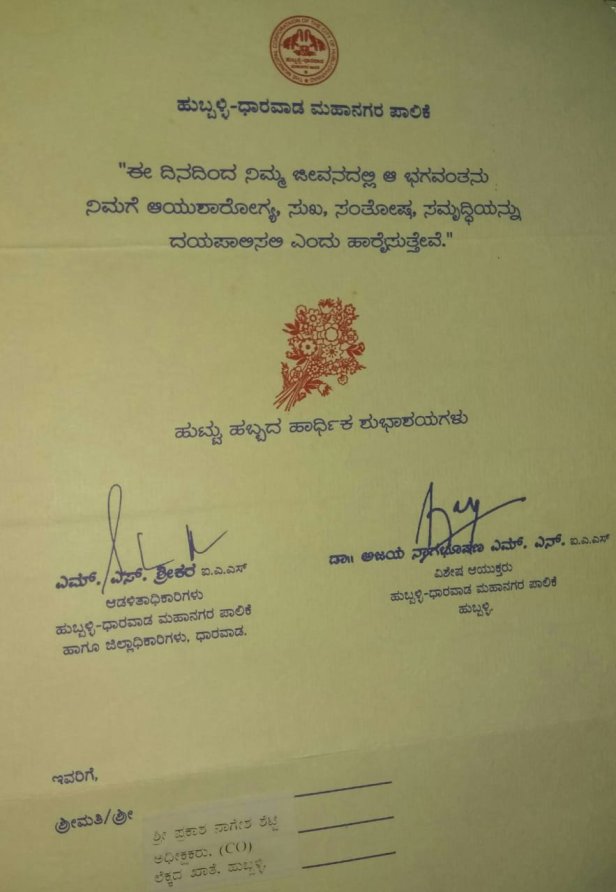 ಹುಬ್ಬಳ್ಳಿ-ಧಾರವಾಡ ಮಹಾನಗರ ಪಾಲಿಕೆ
"ಈ ದಿನದಿಂದ ನಿಮ್ಮ ಜೀವನದಲ್ಲಿ ಆ ಭಗವಂತನು
ನಿಮಗೆ ಆಯುಶಾರೋಗ್ಯ, ಸುಖ, ಸಂತೋಷ, ಸಮೃದ್ಧಿಯನ್ನು
ದಯಪಾಲಿಸಲಿ ಎಂದು ಹಾರೈಸುತ್ತೇವೆ."
ಹುಟ್ಟು ಹಬ್ಬದ ಹಾರ್ಧಿಕ ಶುಭಾಶಯಗಳು
ಎಮ್. ಎಸ್. ಶ್ರೀಕರ ಐ.ಎ.ಎಸ್
ಆಡಳಿತಾಧಿಕಾರಿಗಳು
ಹುಬ್ಬಳ್ಳಿ-ಧಾರವಾಡ ಮಹಾನಗರ ಪಾಲಿಕೆ
ಹಾಗೂ ಜಿಲ್ಲಾಧಿಕಾರಿಗಳು, ಧಾರವಾಡ.
ಡಾ॥ ಅಜಯ ನಾಗಭೂಷಣ ಎಮ್. ಎನ್. ಐ.ಎ.ಎಸ್
ವಿಶೇಷ ಆಯುಕ್ತರು
ಹುಬ್ಬಳ್ಳಿ-ಧಾರವಾಡ ಮಹಾನಗರ ಪಾಲಿಕೆ
ಹುಬ್ಬಳ್ಳಿ.
ಇವರಿಗೆ,
ಶ್ರೀಮತಿ/ಶ್ರೀ
ಶ್ರೀ ಪ್ರಕಾಶ ನಾಗೇಶ ಶೆಟ್ಟಿ
ಅಧೀಕ್ಷಕರು, (CO)
ಲೆಕ್ಕದ ಖಾತೆ, ಹುಬ್ಬಳ್ಳಿ.